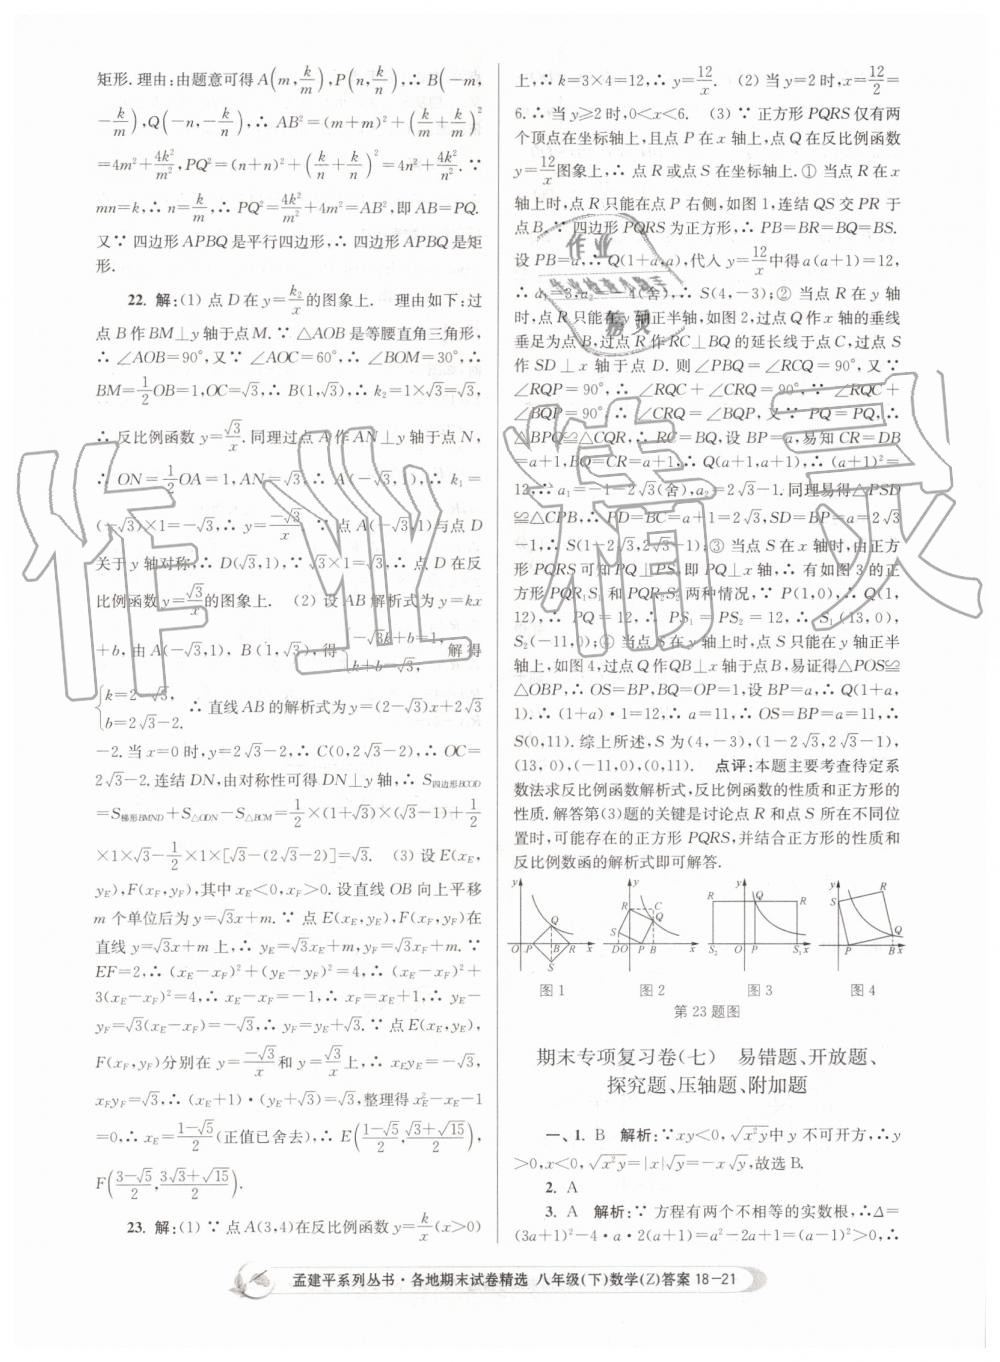 矩形. 理由:由题意可得 A(m, k/m), P(n, k/n), ∴ B(-m,
-k/m), Q(-n, -k/n), ∴ AB²=(m+m)²+(k/m+k/m)²
=4m²+4k²/m², PQ²=(n+n)²+(k/n+k/n)²=4n²+4k²/n². ∵
mn=k, ∴ n=k/m, ∴ PQ²=4k²/m²+4m²=AB², 即 AB=PQ.
又∵ 四边形 APBQ 是平行四边形, ∴ 四边形 APBQ 是矩
形.
22. 解:(1) 点 D 在 y=k₂/x 的图象上. 理由如下:过
点 B 作 BM⊥y 轴于点 M. ∵ △AOB 是等腰直角三角形,
∴ ∠AOB=90°, 又∵ ∠AOC=60°, ∴ ∠BOM=30°, ∴
BM=1/2 OB=1, OC=√3, ∴ B(1,√3), ∴ k₂=1×√3=√3,
∴ 反比例函数 y=√3/x. 同理过点 A 作 AN⊥y 轴于点 N,
∴ ON=1/2 OA=1, AN=√3, ∴ A(-√3,1), ∴ k₁=
(-√3)×1=-√3, ∴ y=-√3/x. ∵ 点 A(-√3,1)与点 D
关于 y 轴对称, ∴ D(√3,1), ∵ √3×1=√3, ∴ 点 D 在反
比例函数 y=√3/x 的图象上. (2) 设 AB 解析式为 y=kx
+b, 由 A(-√3,1), B(1,√3), 得{-√3k+b=1, k+b=√3, 解得
{k=2-√3, b=2√3-2. ∴ 直线 AB 的解析式为 y=(2-√3)x+2√3
-2. 当 x=0 时, y=2√3-2, ∴ C(0,2√3-2), ∴ OC=
2√3-2. 连结 DN, 由对称性可得 DN⊥y 轴, ∴ S四边形BCOD
=S梯形BMND+S△ODN-S△BCM=1/2×(1+√3)×(√3-1)+1/2
×1×√3-1/2×1×[√3-(2√3-2)]=√3. (3) 设 E(x_E,
y_E), F(x_F,y_F), 其中 x_E<0, x_F>0. 设直线 OB 向上平移
m 个单位后为 y=√3x+m. ∵ 点 E(x_E,y_E), F(x_F,y_F)在
直线 y=√3x+m 上, ∴ y_E=√3x_E+m, y_F=√3x_F+m. ∵
EF=2, ∴ (x_E-x_F)²+(y_E-y_F)²=4, ∴ (x_E-x_F)²+
3(x_E-x_F)²=4, ∴ x_E-x_F=-1, ∴ x_F=x_E+1, ∴ y_E-
y_F=√3(x_E-x_F)=-√3, ∴ y_F=y_E+√3. ∵ 点 E(x_E,y_E),
F(x_F,y_F)分别在 y=-√3/x 和 y=√3/x 上, ∴ x_E y_E=-√3,
x_F y_F=√3, ∴ (x_E+1)·(y_E+√3)=√3, 整理得 x_E²-x_E-1
=0, ∴ x_E=(1-√5)/2(正值已舍去), ∴ E((1-√5)/2, (√3+√15)/2),
F((3-√5)/2, (3√3+√15)/2).
23. 解:(1) ∵ 点 A(3,4)在反比例函数 y=k/x(x>0)
上, ∴ k=3×4=12, ∴ y=12/x. (2) 当 y=2 时, x=12/2=
6. ∴ 当 y≥2 时, 0<x<6. (3) ∵ 正方形 PQRS 仅有两
个顶点在坐标轴上, 且点 P 在 x 轴上, 点 Q 在反比例函数
y=12/x 图象上, ∴ 点 R 或点 S 在坐标轴上. ① 当点 R 在 x
轴上时, 点 R 只能在点 P 右侧, 如图 1, 连结 QS 交 PR 于
点 B. ∵ 四边形 PQRS 为正方形, ∴ PB=BR=BQ=BS.
设 PB=a, ∴ Q(1+a,a), 代入 y=12/x 中得 a(a+1)=12,
∴ a₁=3, a₂=-4(舍), ∴ S(4,-3); ② 当点 R 在 y 轴
时, 点 R 只能在 y 轴正半轴, 如图 2, 过点 Q 作 x 轴的垂线
垂足为点 B, 过点 R 作 RC⊥BQ 的延长线于点 C, 过点 S
作 SD⊥x 轴于点 D. 则∠PBQ=∠RCQ=90°, 又∵
∠RQP=90°, ∴ ∠RQC+∠CRQ=90°. ∵∠RQC+
∠BQP=90°, ∴ ∠CRQ=∠BQP, 又∵ PQ=PQ, ∴
△BPQ≌△CQR, ∴ RC=BQ, 设 BP=a, 易知 CR=DB
=a+1, BQ=CR=a+1, ∴ Q(a+1,a+1), ∴ (a+1)²=
12, ∴ a₁=-1-2√3(舍), a₂=2√3-1. 同理易得△PSD
≌△CPB, ∴ PD=BC=a+1=2√3, SD=BP=a=2√3
-1, ∴ S(1-2√3,2√3-1); ③ 当点 S 在 x 轴时, 由正方
形 PQRS 可知 PQ⊥PS, 即 PQ⊥x 轴, ∴ 有如图 3 的正
方形 PQR₁S₁ 和 PQR₂S₂ 两种情况, ∵ P(1,0), ∴ Q(1,
12), ∴ PQ=12, ∴ PS₁=PS₂=12, ∴ S₁(13,0),
S₂(-11,0); ④ 当点 S 在 y 轴上时, 点 S 只能在 y 轴正半
轴上, 如图 4, 过点 Q 作 QB⊥x 轴于点 B, 易证得△POS≌
△OBP, ∴ OS=BP, BQ=OP=1, 设 BP=a, ∴ Q(1+a,
1). ∴ (1+a)·1=12, ∴ a=11, ∴ OS=BP=a=11, ∴
S(0,11). 综上所述, S 为(4,-3), (1-2√3,2√3-1),
(13,0), (-11,0), (0,11). 点评:本题主要考查待定系
数法求反比例函数解析式, 反比例函数的性质和正方形的
性质. 解答第(3)题的关键是讨论点 R 和点 S 所在不同位
置时, 可能存在的正方形 PQRS, 并结合正方形的性质和
反比例数函的解析式即可解答.
y Q O P B R x S
y R C Q S D O P B x
R y Q R S₂ O P S₁ x
y R S Q O P B x
图 1 图 2 图 3 图 4
第 23 题图
期末专项复习卷(七) 易错题、开放题、
探究题、压轴题、附加题
一、1. B 解析:∵xy<0, √(x²y) 中 y 不可开方, ∴y
>0, x<0, √(x²y)=|x|√y=-x√y, 故选 B.
2. A
3. A 解析:∵ 方程有两个不相等的实数根, ∴Δ=
(3a+1)²-4·a·2(a+1)=a²-2a+1=(a-1)²>0,
孟建平系列丛书·各地期末试卷精选 八年级(下)数学(Z)答案 18-21
作业精灵